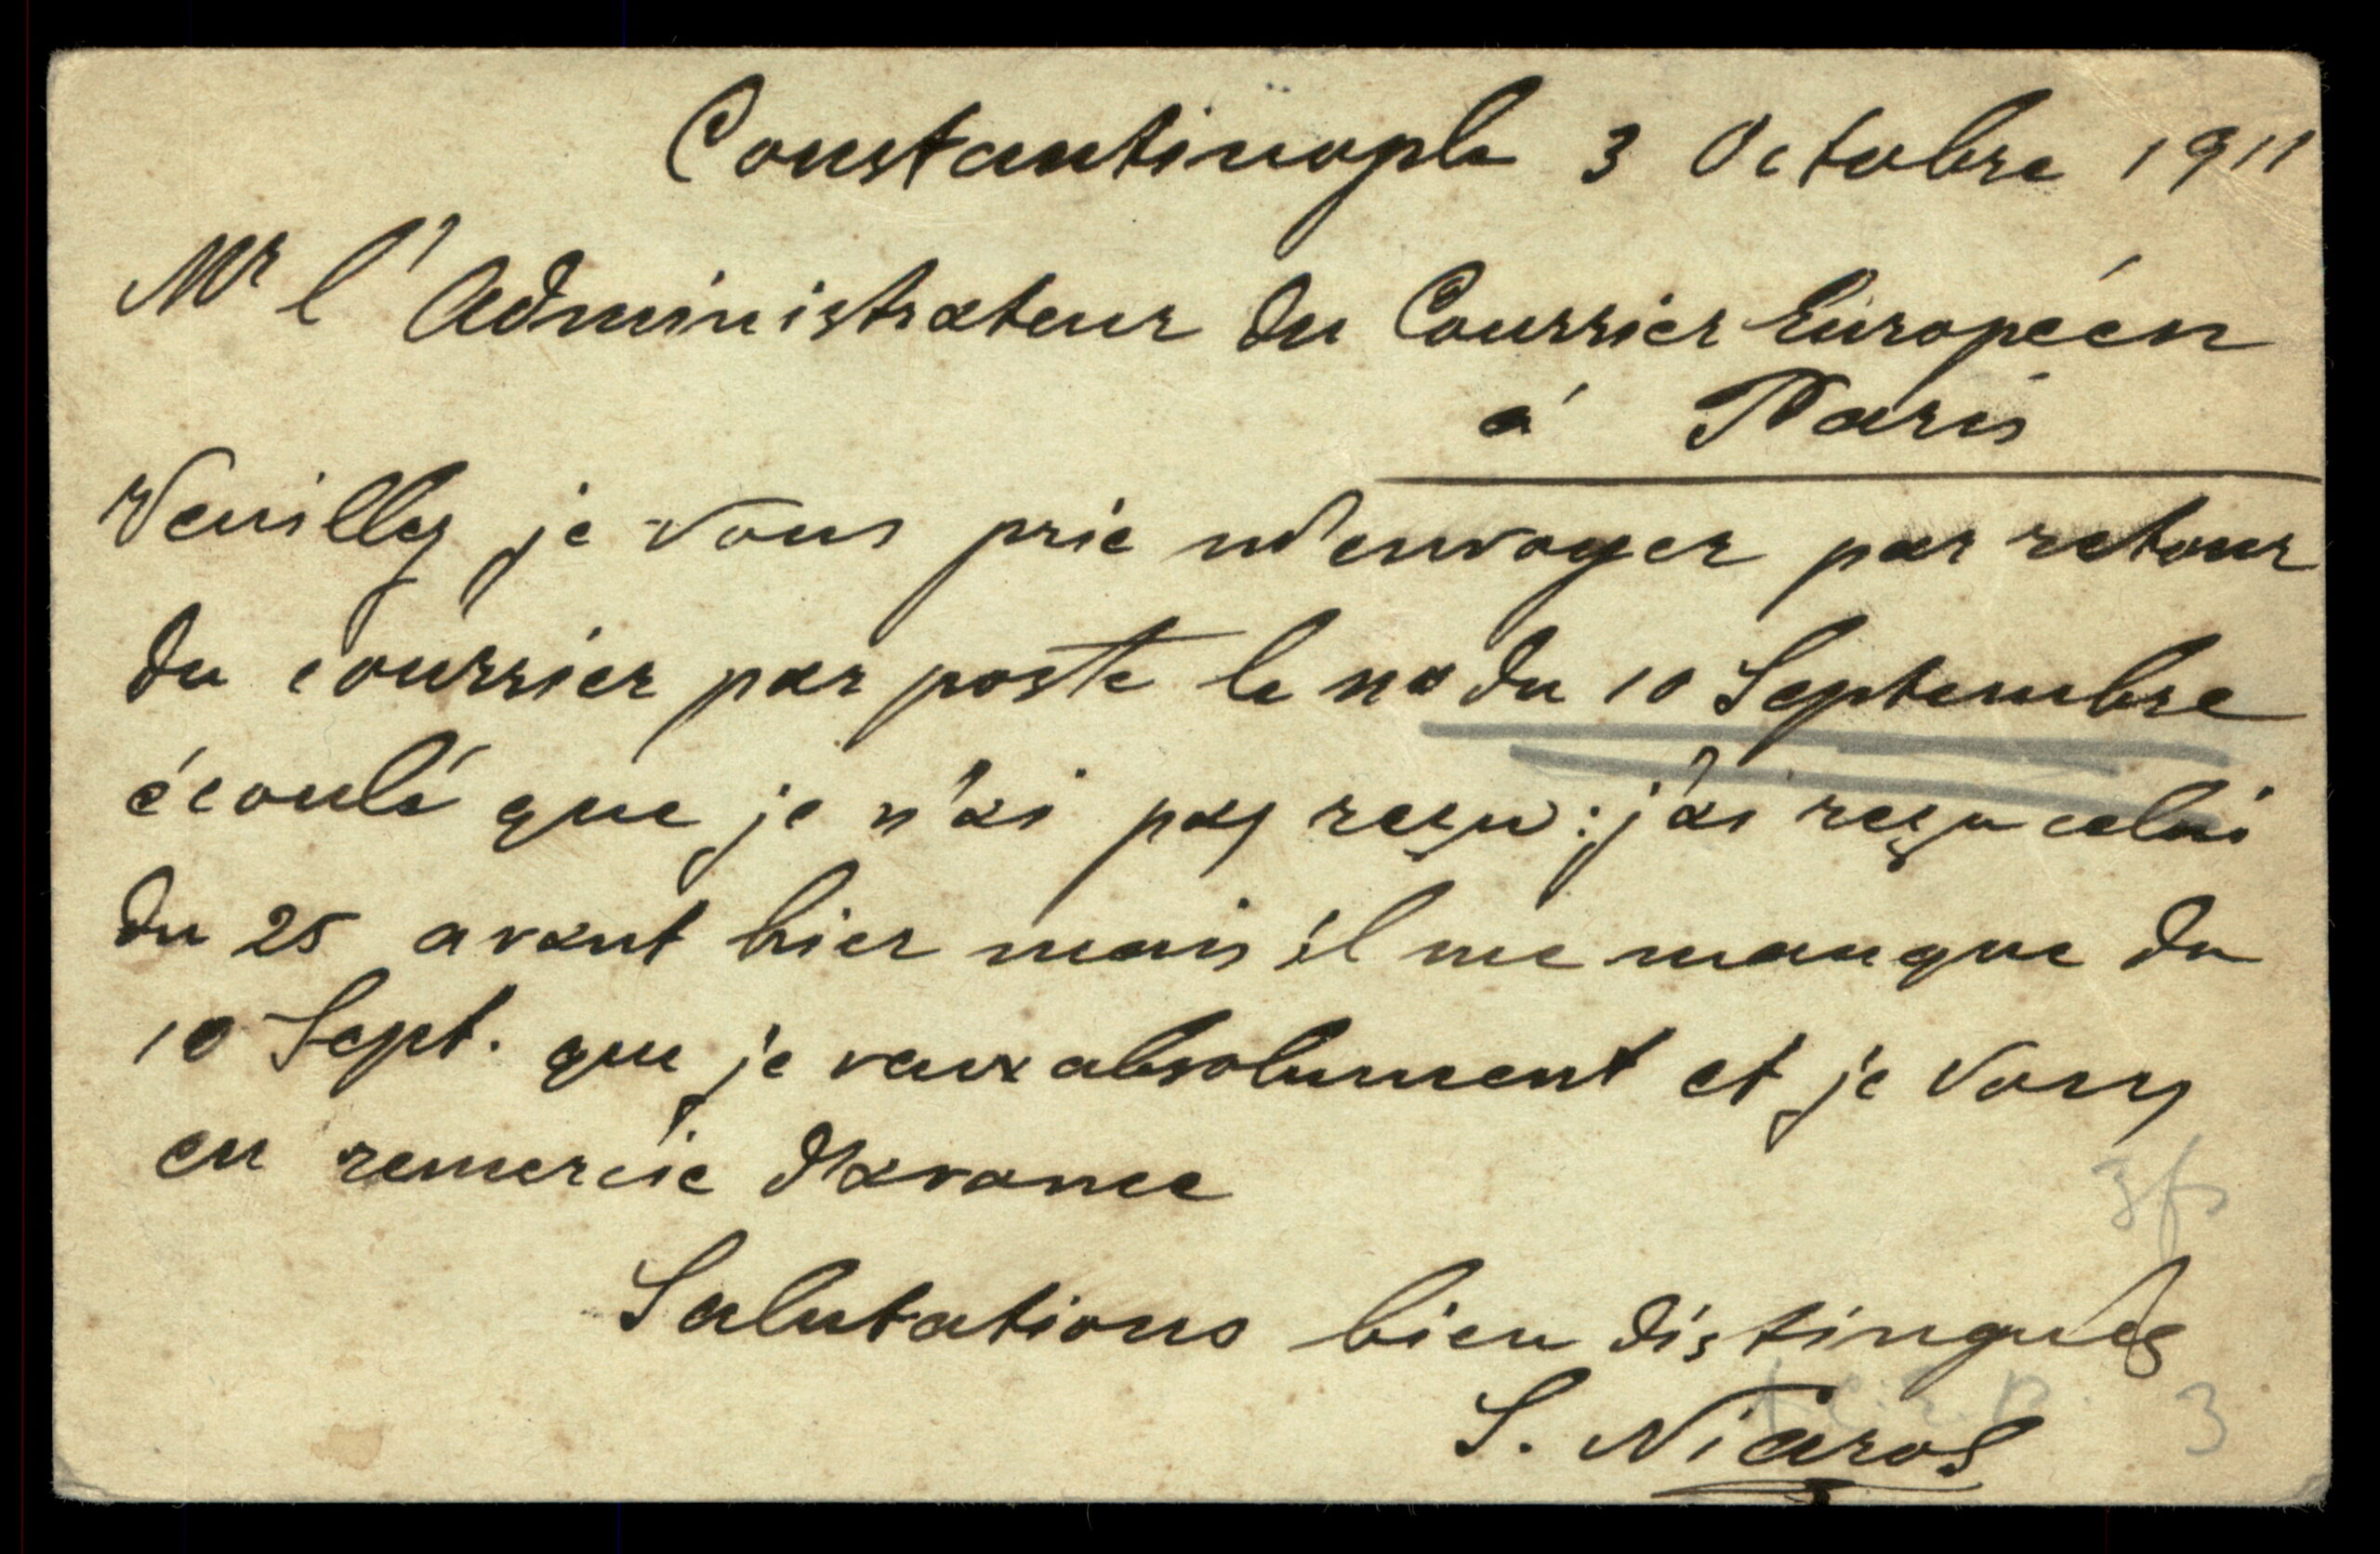 Constantinople 3 Octobre 1911
Mr l'Administrateur du Courrier Européen
à Paris
Veuillez je vous prie m'envoyer par retour
du courrier par poste le no du 10 Septembre
écoulé que je n'ai pas reçu : j'ai reçu celui
du 25 avant hier mais il me manque du
10 Sept. que je veux absolument et je vous
en remercie d'avance
3 fs
Salutations bien distingués
S. Niaros
3